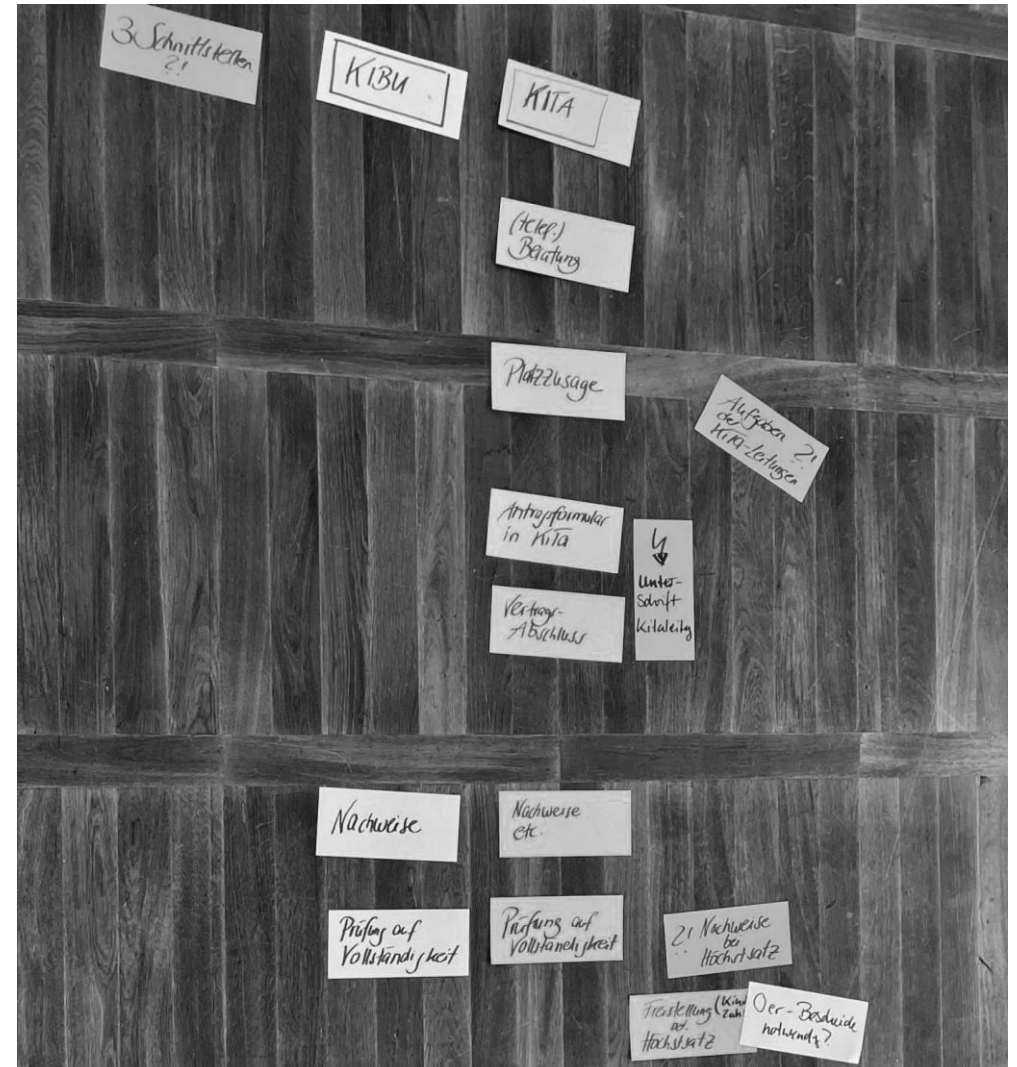 3 Schnittstellen
?!
KIBU
KITA
(telef.)
Beratung
Platzzusage
Aufgaben
der ?!
KiTa-Leitungen
Antragsformular
in KiTa
Unter-
schrift
Kitaleitg
Vertrags-
Abschluss
Nachweise
Nachweise
etc.
Prüfung auf
Vollständigkeit
Prüfung auf
Vollständigkeit
?! Nachweise
bei
Höchstsatz
Freistellung (Kind
Zah
od.
Höchstsatz
0er-Bescheide
notwendig?